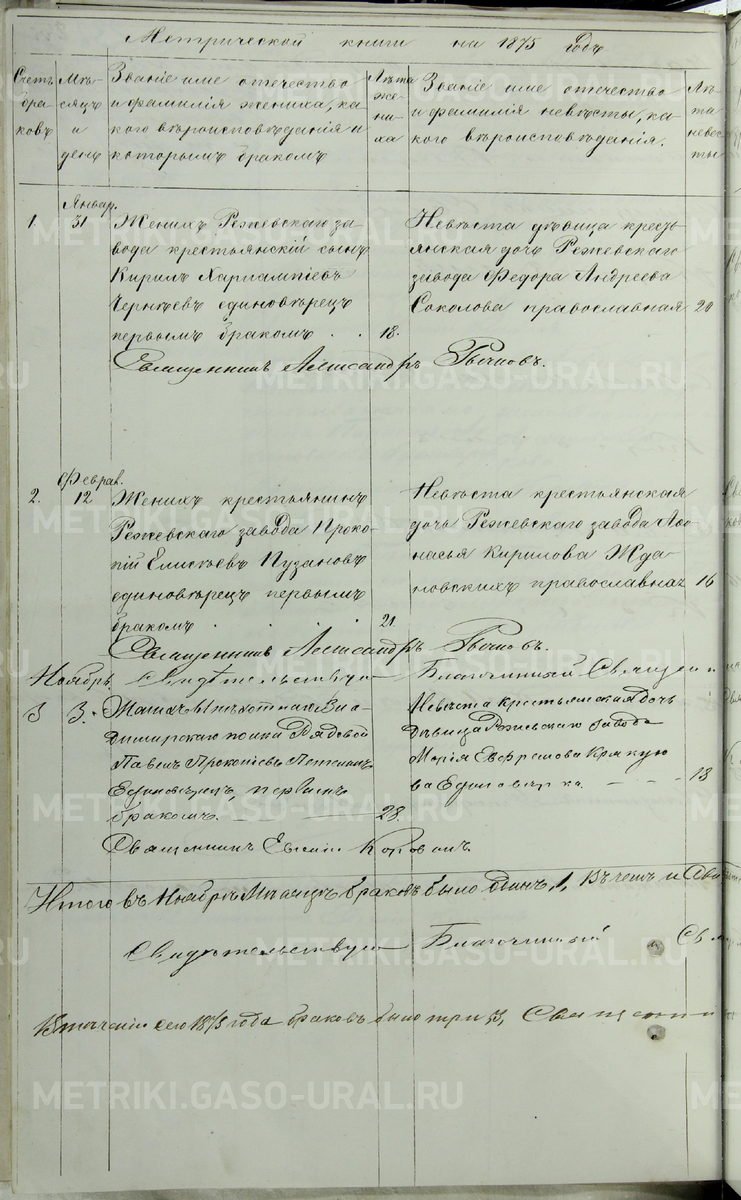 Метрической книги на 1875 годъ
Счетъ браковъ
Мѣсяцъ и день
Званіе име отечество
и фамилія жениха, ка-
кого вѣроисповѣданія и
которымъ бракомъ
Лѣта жениха
Званіе име отечество
и фамилія невѣсты, ка-
кого вѣроисповѣданія.
Лѣта невесты
Январ.
1. 31
Женихъ Режевскаго за-
вода крестьянскій сынъ
Кирилъ Харлампіевъ
Чернѣевъ единовѣрецъ
первымъ бракомъ . . 18.
Невѣста дѣвица кресть-
янская дочь Режевскаго
завода Федора Андреева
Соколова православная 20
Священникъ Александръ
Феврал.
2. 12
Женихъ крестьянинъ
Режевскаго завода Проко-
пій Елисѣевъ Пузановъ
единовѣрецъ первымъ
бракомъ . . 21.
Невѣста крестьянская
дочь Режевскаго завода Афо-
насья Кирилова Жда-
новскихъ православная 16
Священникъ Александръ
Ноябрь. Свидѣтельствую Благочинный Священни
3 3.
Владимирскаго полка Рядовой
Павелъ Прокопіевъ
Единовѣрецъ, первымъ
бракомъ. 28.
Невѣста крестьянская Дочь
Дѣвица Режевскаго завода
Марія Евфремова
Единовѣрка. 18
Священникъ
Итого въ Ноябрѣ Мѣсяцѣ браковъ было одинъ, 1, Въ чемъ и
Свидѣтельствую Благочинный
Втеченіи сего 1875 года браковъ было три 3, Священни
METRIKI.GASO-URAL.RU